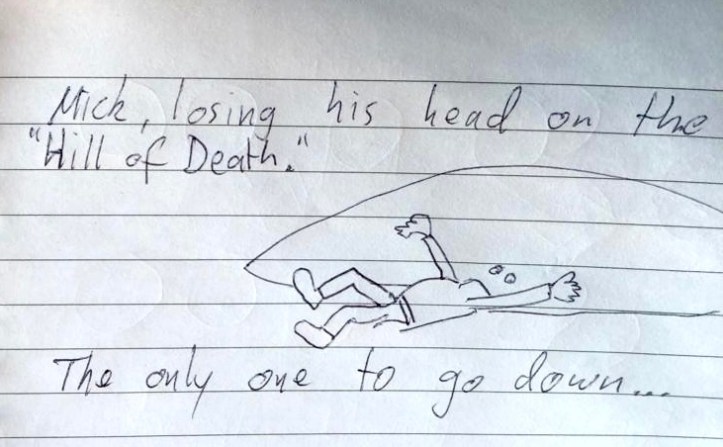 Mick, losing his head on the
"Hill of Death."
The only one to go down...